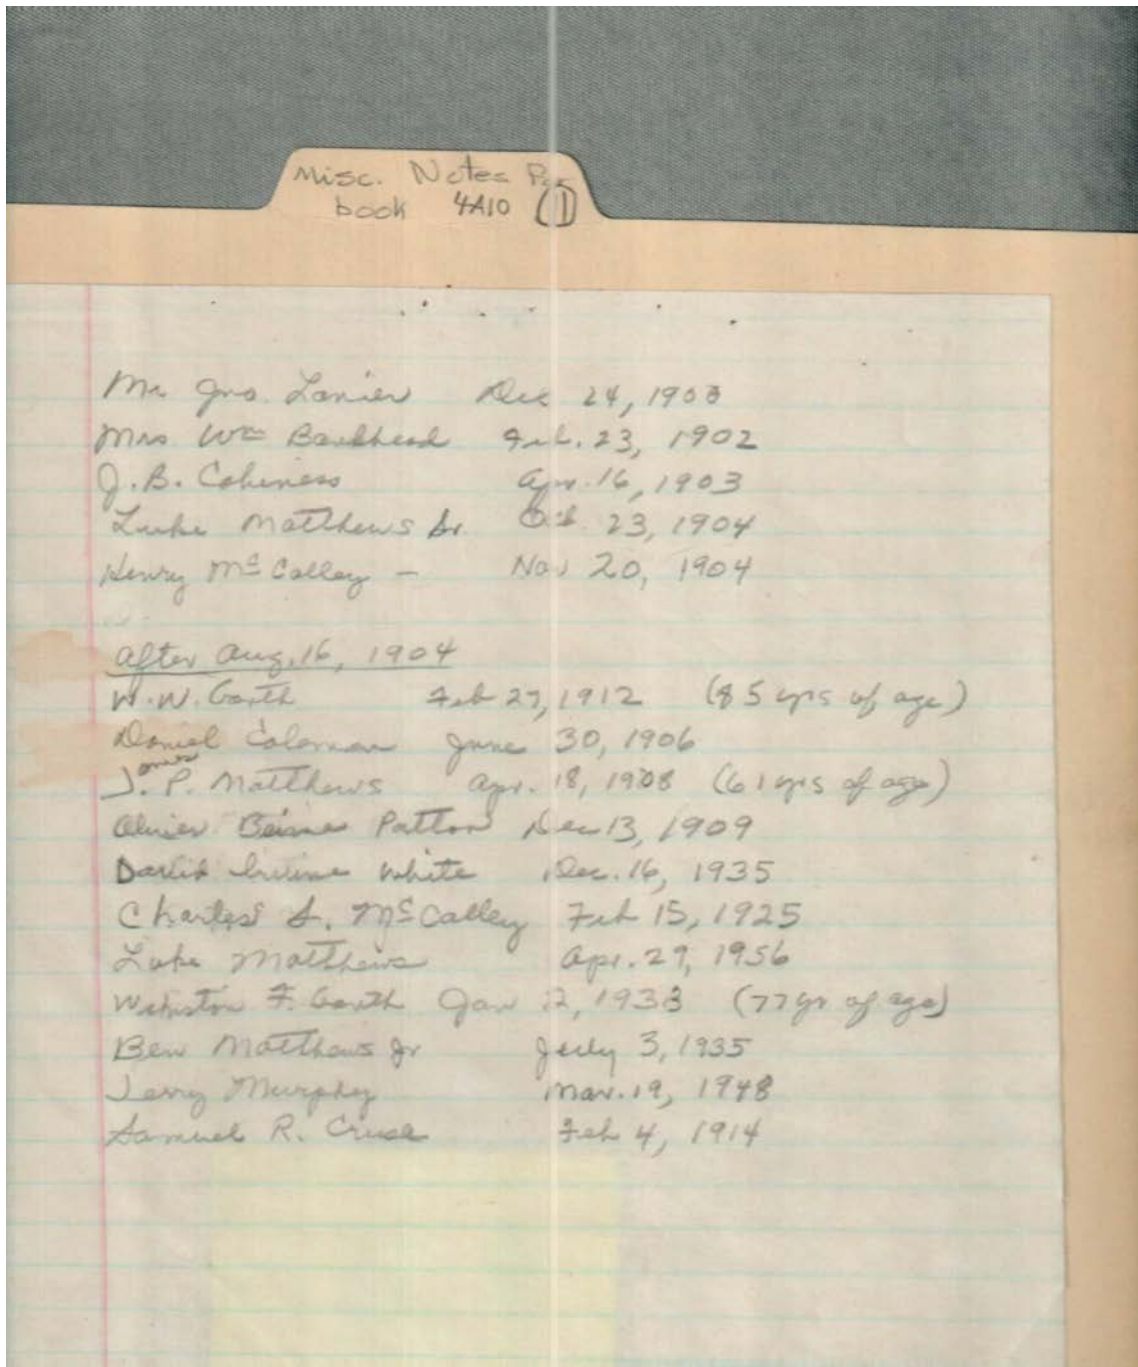 Misc. Notes
book 4A10 (1)
Mr Jno. Lanier Dec 24, 1903
Mrs Wm Bankhead Feb. 23, 1902
J.B. Cabiness Apr. 16, 1903
Luke Matthews Sr. Oct. 23, 1904
Henry McCalley – Nov 20, 1904
After Aug. 16, 1904
W.W. Garth Feb 27, 1912 (85 yrs of age)
Daniel Coleman June 30, 1906
James P. Matthews Apr. 18, 1908 (61 yrs of age)
Oliver Beirne Patton Dec 13, 1909
David Irvine White Dec. 16, 1935
Charles S. McCalley Feb 15, 1925
Luke Matthews Apr. 29, 1956
Winston F. Garth Jan 12, 1933 (77 yr of age)
Ben Matthews Jr July 3, 1935
Jerry Murphy Mar. 19, 1948
Samuel R. Cruse Feb 4, 1914